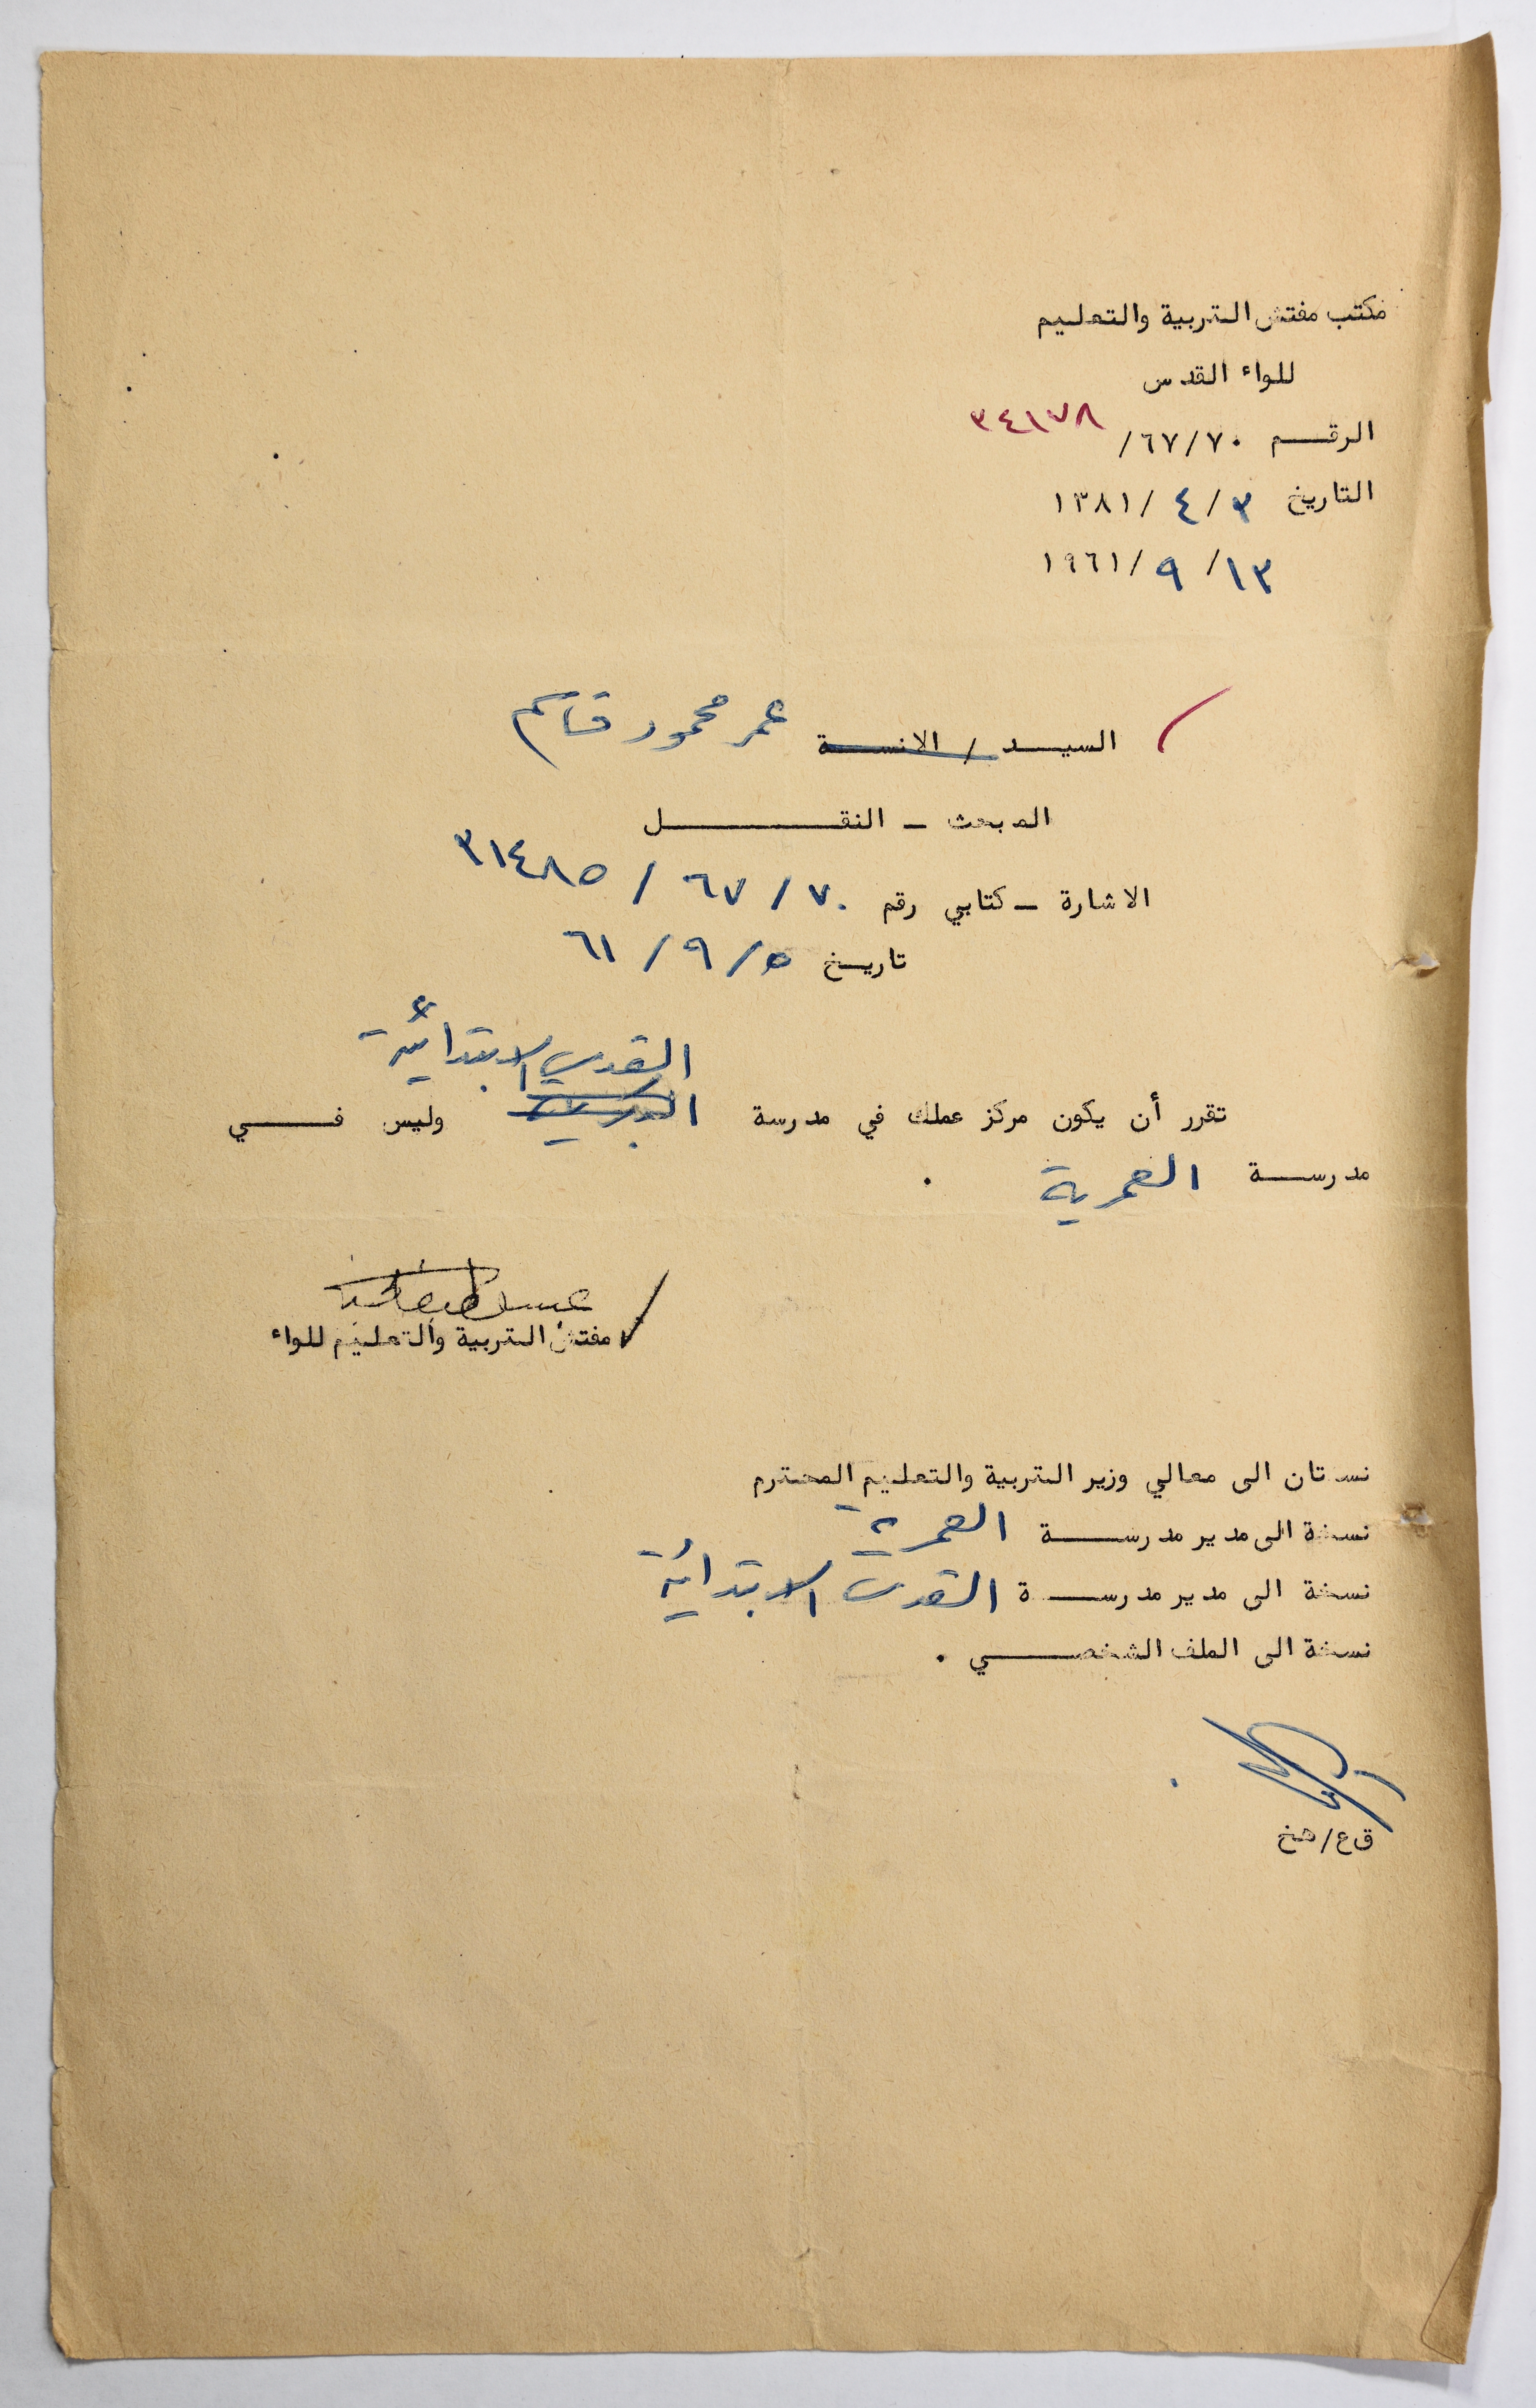 مكتب مفتش التربية والتعليم
للواء القدس
الرقم ٦٧/٧٠/ ٣٤١٧٨
التاريخ ٣/ ٤/ ١٣٨١
١٣/ ٩/ ١٩٦١
السيد / الانسة عمر محمود قاسم
المبحث - النقل
الاشارة - كتابي رقم ٧٠/ ٦٧/ ٣١٤٨٥
تاريخ ٥/ ٩/ ٦١
القدس الابتدائية
تقرر أن يكون مركز عملك في مدرسة وليس في
مدرسة العمرية .
مفتش التربية والتعليم للواء
نسختان الى معالي وزير التربية والتعليم المحترم
نسخة الى مدير مدرسة العمرية
نسخة الى مدير مدرسة القدس الابتدائية
نسخة الى الملف الشخصي .
ق ع/هخ